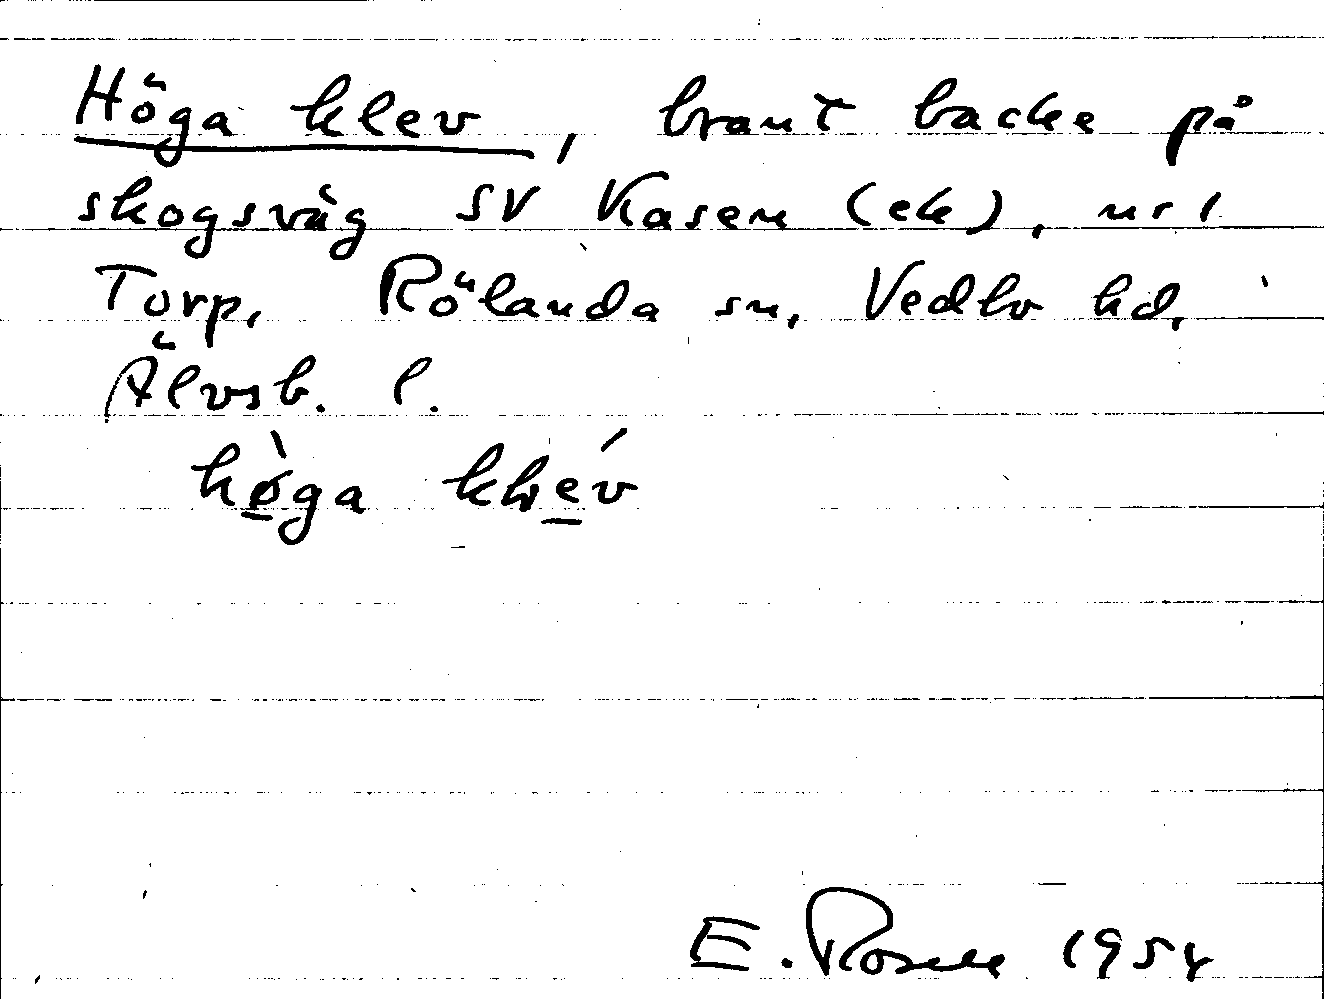 Höga klev, brant backe på
skogsväg SV Kasen (ek), nr 1
Torp, Rölanda sn, Vedbo hd,
Älvsb. l.
hø̀ga
E. Rosell 1954